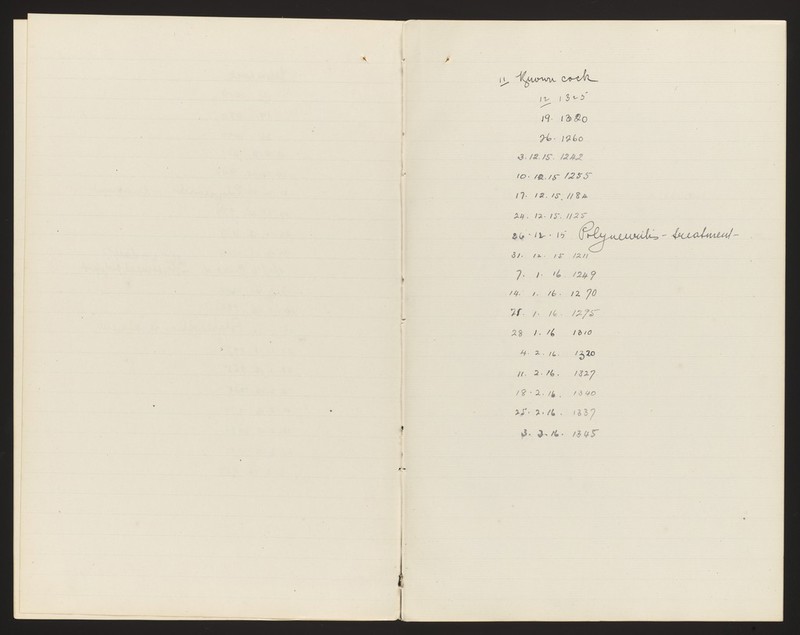 11 Brown cock
12 1325
19. 1320
26. 1260
3.12.15. 1242
10.12.15 1255
17. 12. 15. 1184
24. 12. 15. 1125
26-12-15 Polyneuritis - treatment -
31. 12. 15 1211
7. 1. 16 1249
14. 1. 16. 1270
21. 1. 16. 1275
28 1. 16 1310
4. 2. 16. 1320
11. 2. 16. 1327
18. 2. 16. 1340
25. 2. 16. 1337
3. 3. 16. 1345